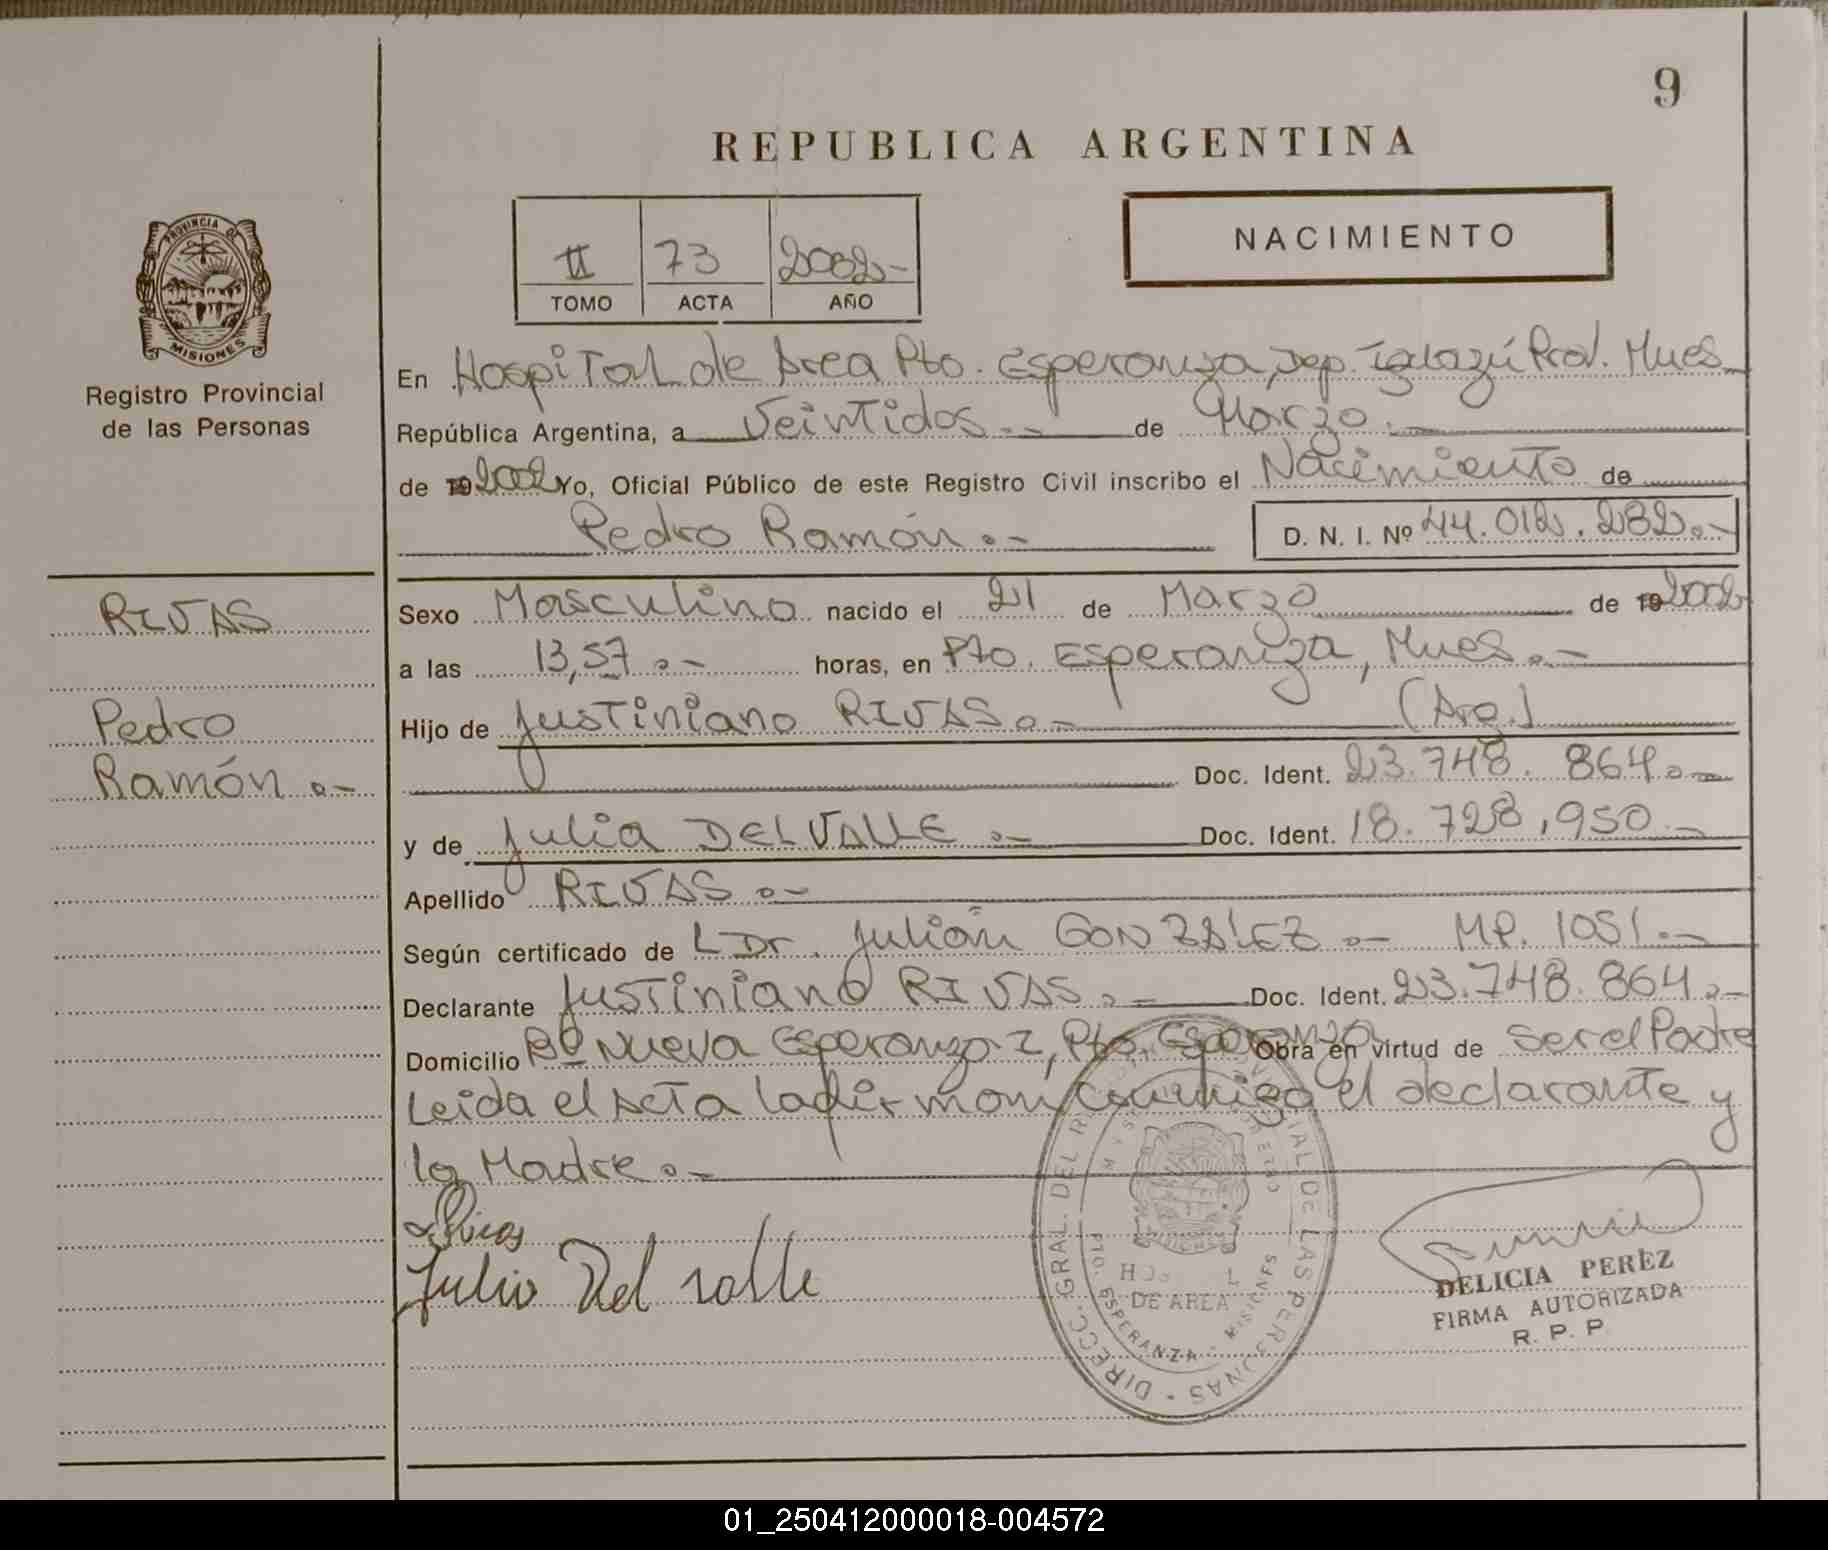 9
REPUBLICA ARGENTINA
II 73 2002-
TOMO ACTA AÑO
NACIMIENTO
PROVINCIA DE
MISIONES
Registro Provincial
de las Personas
En Hospital de Area Pto. Esperanza, Dep. Iguazú Prov. Mnes
República Argentina, a Veintidos.- de Marzo.-
de 19 2002 Yo, Oficial Público de este Registro Civil inscribo el Nacimiento de
Pedro Ramón.- D. N. I. Nº 44.012.282.-
RIVAS
Pedro
Ramón.-
Sexo Masculino nacido el 21 de Marzo de 19 2002
a las 13,57.- horas, en Pto. Esperanza, Mnes.-
Hijo de Justiniano RIVAS.- (Arg.)
Doc. Ident. 23.748.864.-
y de Julia DELVALLE.- Doc. Ident. 18.728,950.-
Apellido RIVAS.-
Según certificado de L Dr. Julián GONZALEZ.- MP. 1051.-
Declarante Justiniano RIVAS.- Doc. Ident. 23.748.864.-
Domicilio Bº Nueva Esperanza I, Pto. Esperanza Obra en virtud de ser el Padre
Leida el Acta la firman conmigo el declarante y
la Madre.-
Rivas
Julia Del valle
DIRECC. GRAL. DEL REG. PROVINCIAL DE LAS PERSONAS
DE AREA
PTO. ESPERANZA - MISIONES
DELICIA PEREZ
FIRMA AUTORIZADA
R. P. P.
01_250412000018-004572